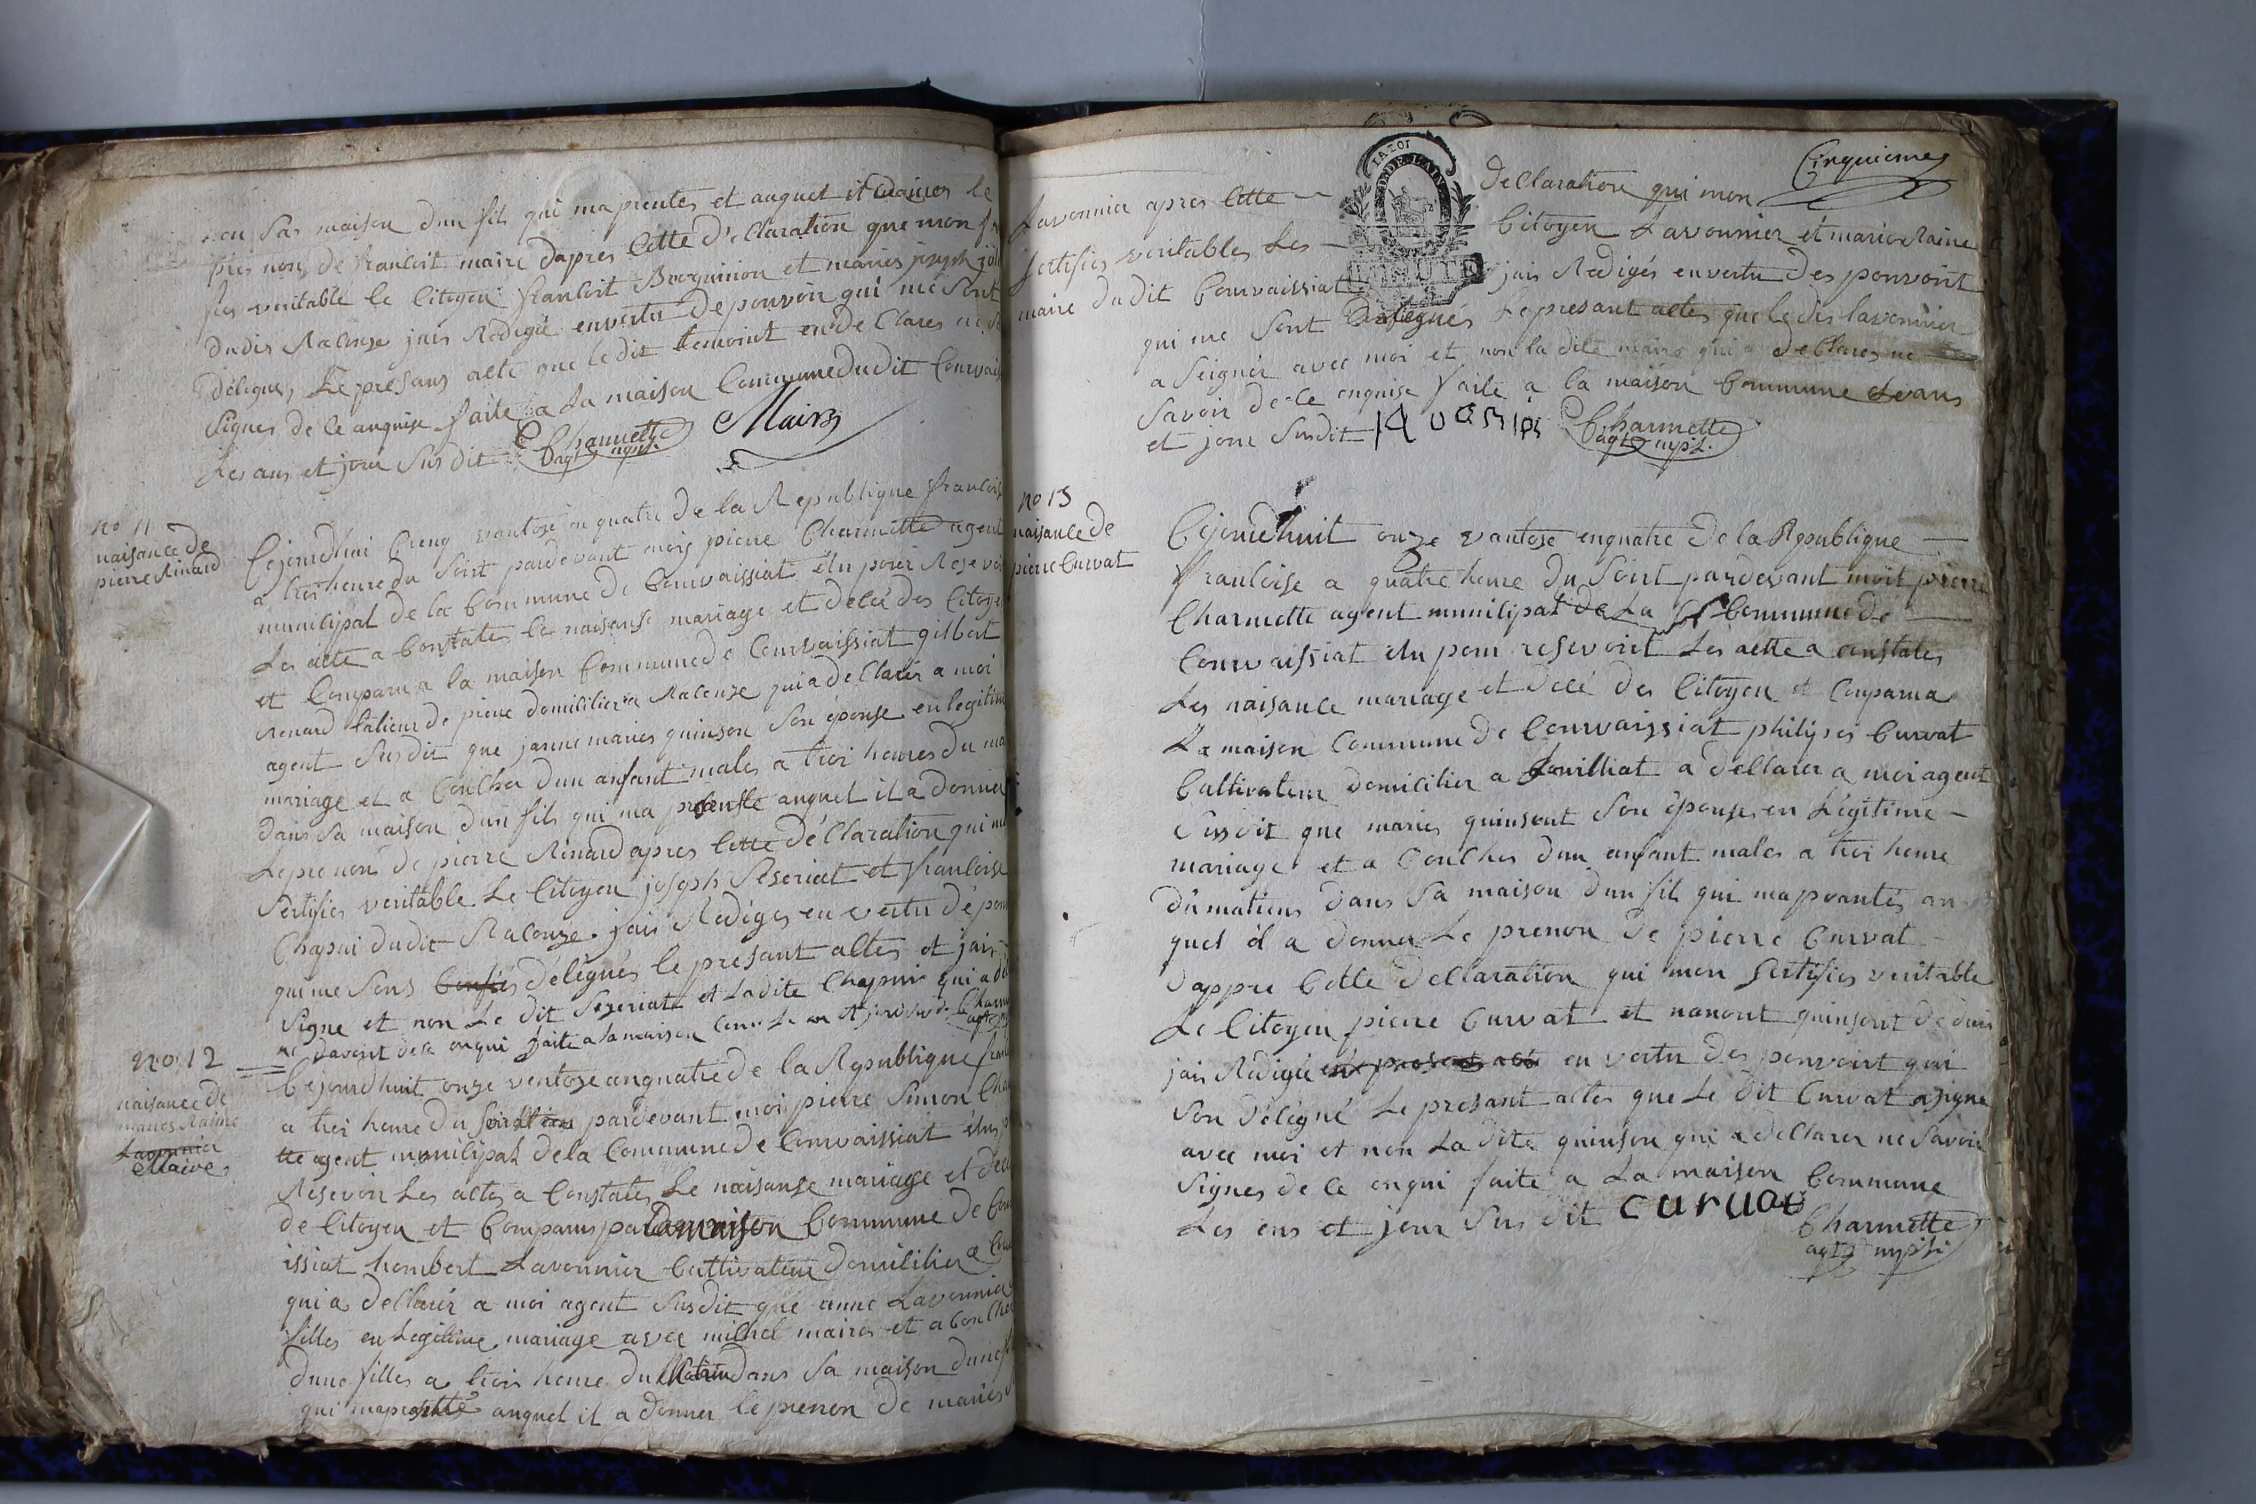 dans sa maison dun fils qui ma prentés et auquel il donnes le
prenon de francoit maire dapres cette déclaration que mon
fies veritable le citoyen francoit Borguinion et maries joseph
dudis Racouze jais Rédigée envertu de pouvoir qui me sont
délégues, Le presans acte que ledit temoint en de Clares ne
Signer de ce anquise faite a La maison Commune dudit Courvais
Les ans et jour Sus dit Charmette agt mpl. Maire
no 11
naisance de
pierre Rinard
Cejourdhui Cinq vantose en quatre de la Republique francois
a troi heure du soir pardevant mois pierre Charmette agent
municipal de la Commune de Courvaissiat élu pour Resevoi
Les acte a Constater les naisanse mariage et decé des Citoye
et Comparu a la maison Commune de Courvaissiat gilbert
Renard tatieur de piere domicilier a Racouze qui a declarér a moi
agent Susdit que janne maries quinson Son épouse en legitim
mariage et a Coucher dun anfant males a troi heures du ma
dans Sa maison dun fils qui ma presenste auquel il a donner
Le prenon de pierre Rinard apres Cette déClaration qui m
Sertifier veritable Le Citoyen joseph Seseriat et francoise
Chapui dudit Racouze. jais Rédiges en vertu dé pou
qui me Sons Confies délégués le presant actes et jais
Signe et non Le dit Seseriat et Ladite Chapuir qui a dé
ne Savoit de ce enqui faite a la maison Comm Le an et jour Sus di Charm
no 12
naisance de
maries Raine
Lavonnier
Maire
Cejourdhuit onze ventoze anquatre de la Republique fran
a troi heure du Soir pardevant moi pierre Simon Char
tte agent municipal dela Commune de Courvaissiat élus p
Resevoir Les actes a Constates Le naisanse mariage et déc
de Citoyen et Comparus pa La maison Commune de Cour
issiat hombert Lavonnier Cultivateur domicilier a Cou
qui a declarér a moi agent Susdit que anne Lavonnier
filles en Legitime mariage avec michel maires et a Couche
dune filles a troi heure du Matin dans Sa maison dune f
qui ma presentté auquel il a donner le prenon de maries
Cinquieme
Lavonnier apres Cette déClaration qui mon
Sertifier veritables Les Citoyen Lavonnier et marie Raine
maire dudit Courvaissiat jais Redigés envertu des pouvoirt
qui me Sont delegués Le presant actes que Le dis lavonnier
a Seigner avec moi et non la dite maire qui a deClares ne
Savoir de Ce enquise faite a la maison Commune Le ans
et jour Susdit lavonier Charmette agt mpl.
no 13
naisance de
pierre Curvat
Cejourdhuit onze vantose enquatre de la Republique
francoise a quatre heure du Soirt pardevant moit pierre
Charmette agent municipal de La Commune de
Courvaissiat élu pour resevoir Les actte a constater
Les naisance mariage et décé des Citoyen et Comparu a
La maison Commune de Courvaissiat philipes Curvat
Cultivateur domicilier a Rouilliat a declarer a moi agent
Susdit que maries quinsont Son épouses en Légitime
mariage et a Coucher dun anfant males a troi heure
du matiens dans Sa maison dun fil qui ma prantés au
quel il a donner Le prenon de pierre Curvat
dappre Cette declaration qui mon Sertifies veritable
Le Citoyen pierre Curvat et nanont quinsont dédui
jais Rédigée le presant acte en vertu des pouvoirt qui
Son délégué Le presant actes que Le dit Curvat a signe
avec moi et non La dite quinson qui a declarer ne Savoir
Signes de Ce enqui faite a La maison Commune
Les ens et jour Sus dit curvat
Charmette
agt mpl